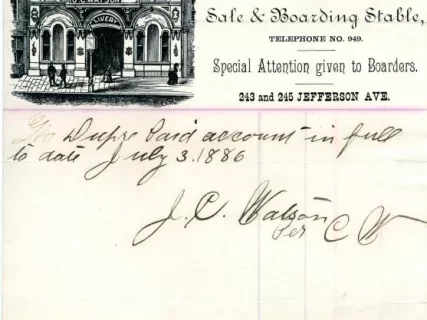 J. C. WATSON
LIVERY
Sale & Boarding Stable,
TELEPHONE NO. 949.
Special Attention given to Boarders.
243 and 245 JEFFERSON AVE.
Dupre paid account in full
to date July 3. 1886
J. C. Watson
per C W